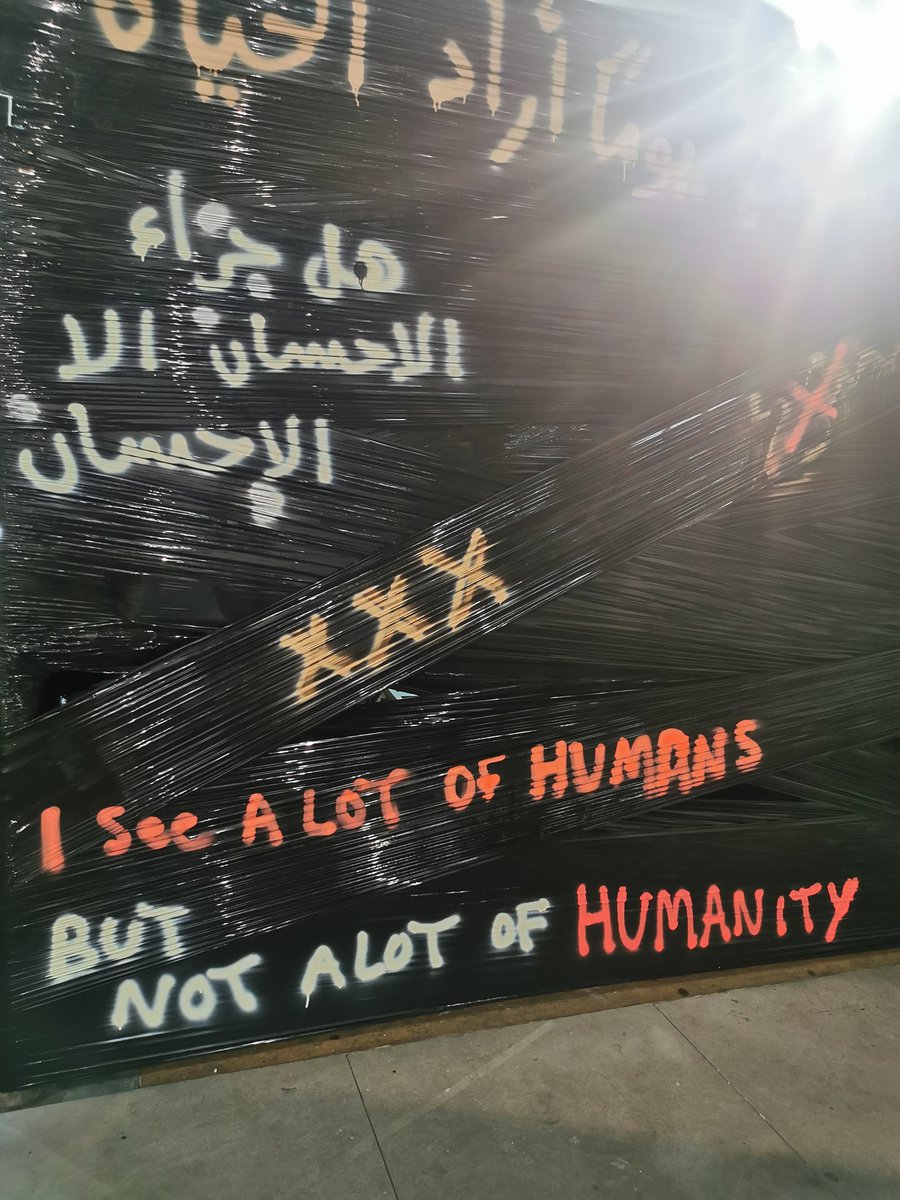 يوماً أراد الحياة
هل جزاء
الاحسان الا
الإحسان
X
XXX
I See A LOT OF HUMANS
BUT
NOT A LOT OF HUMANITY